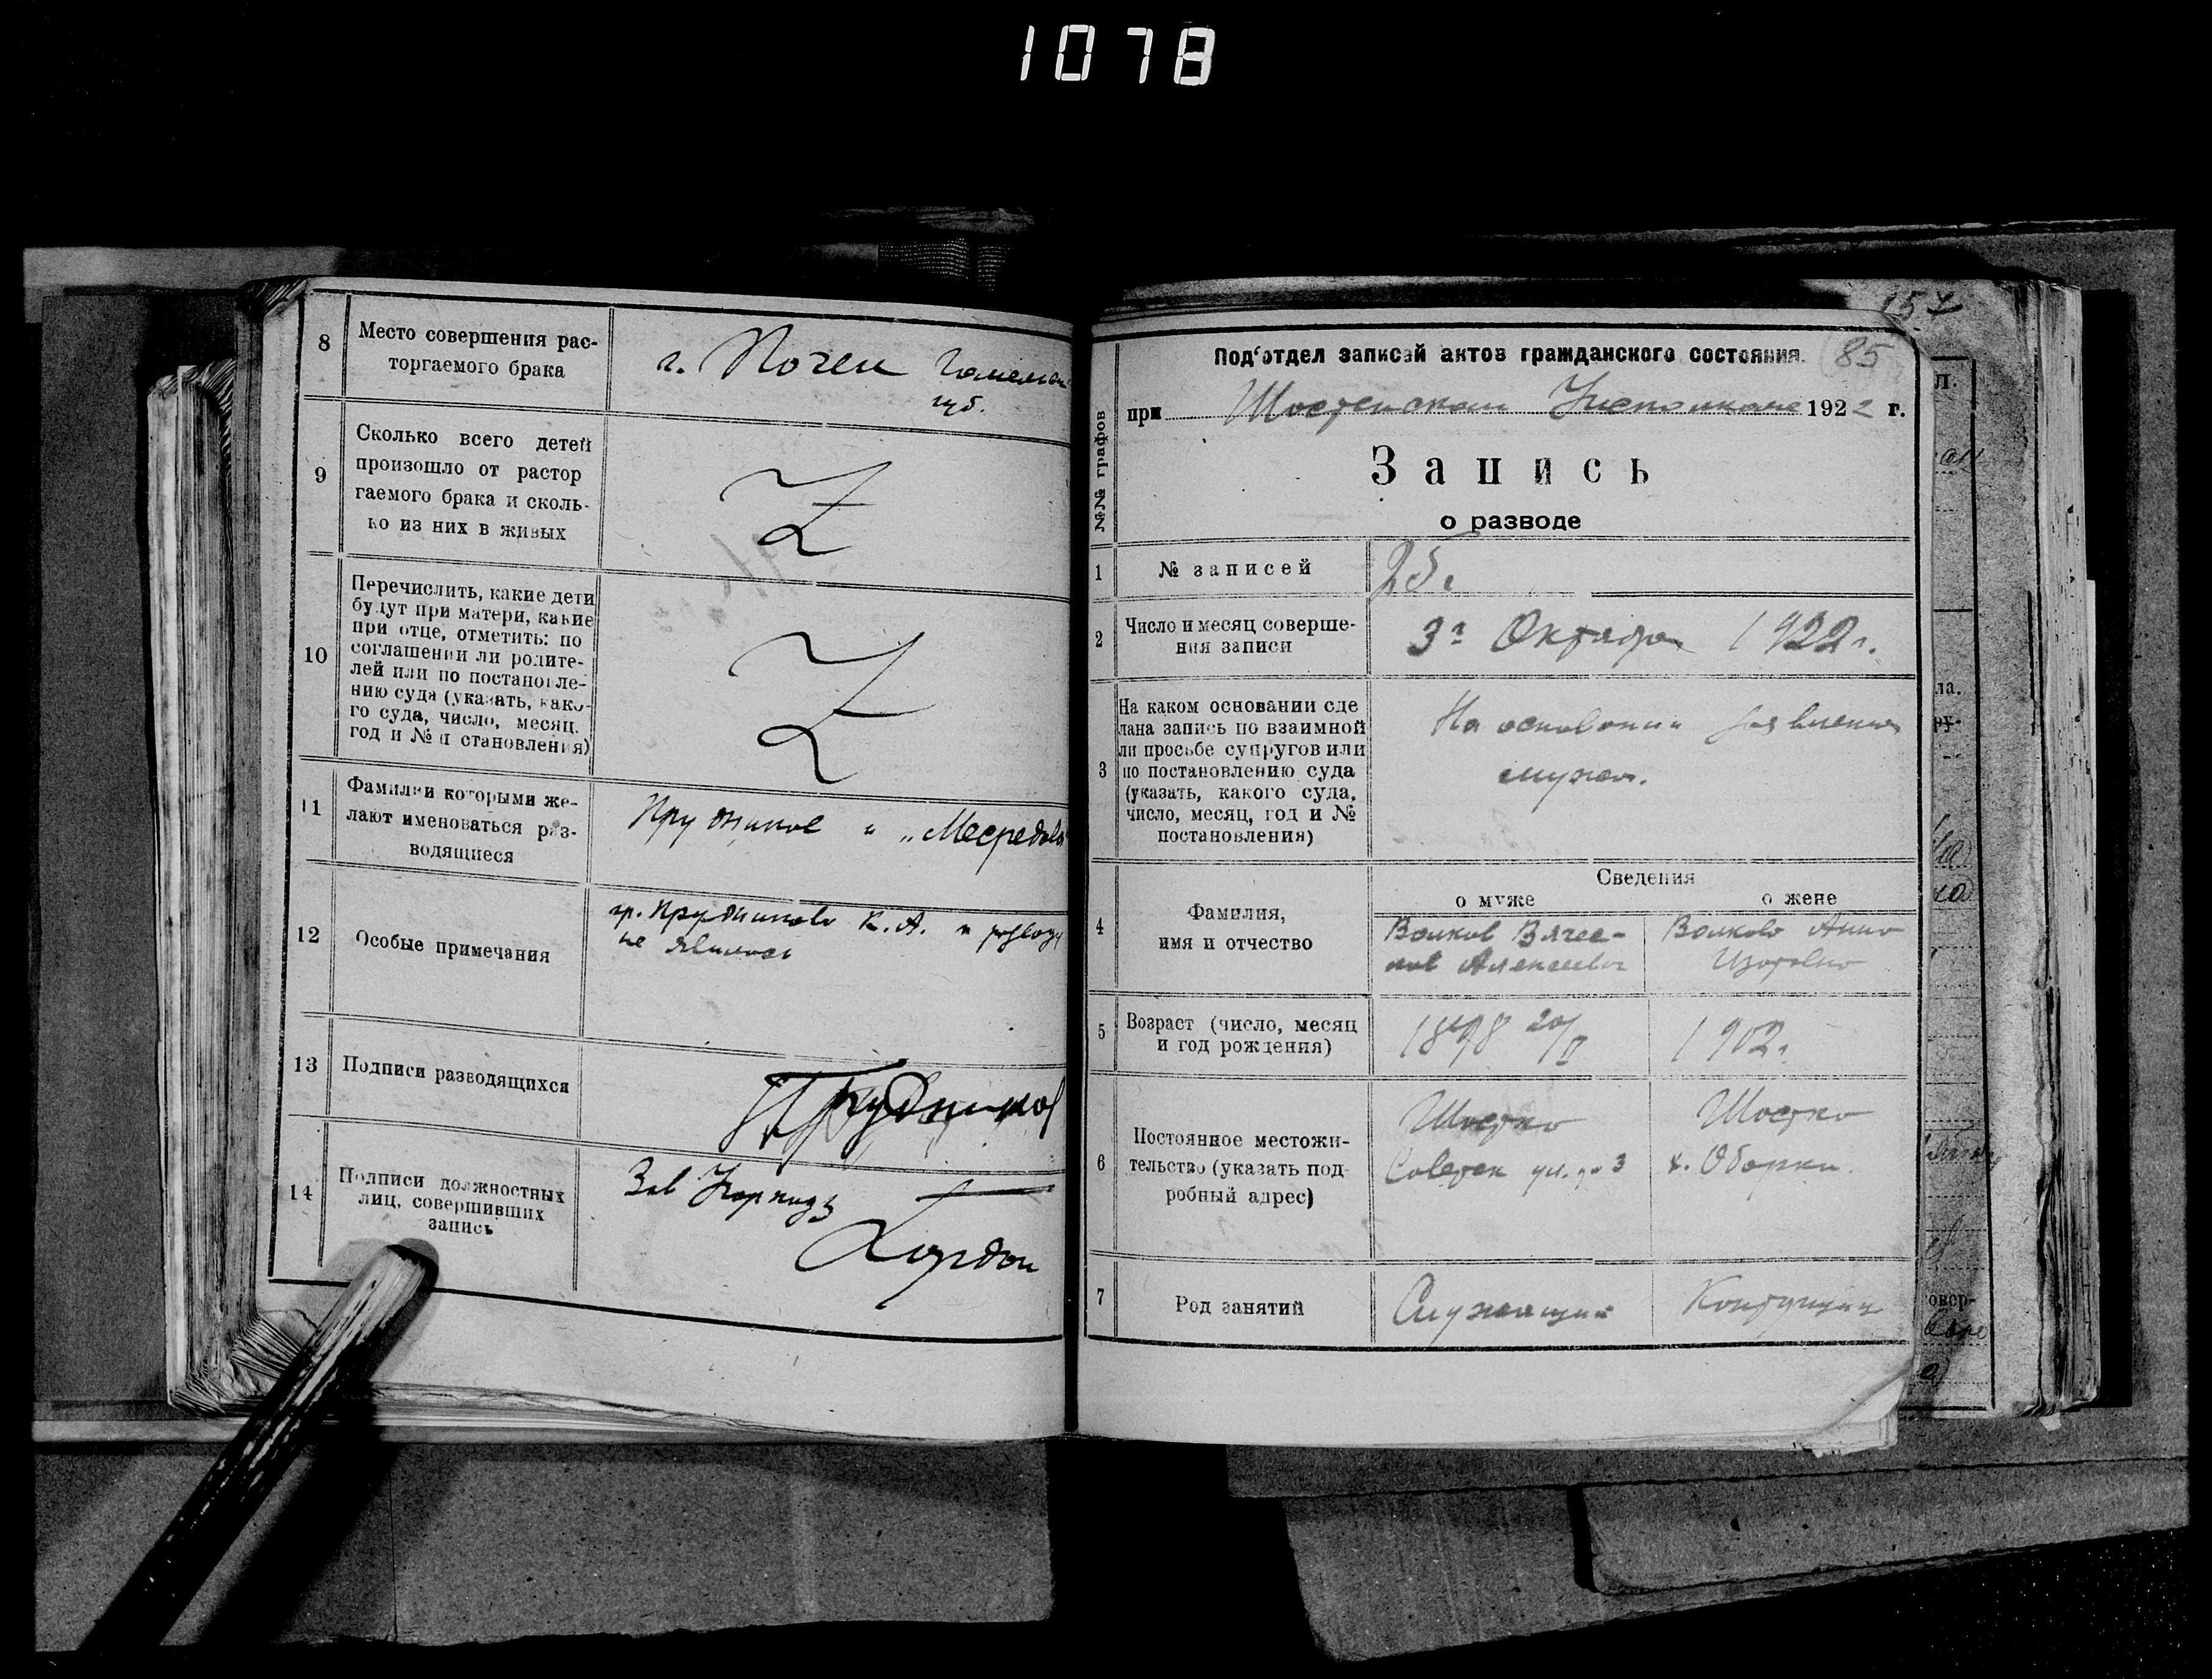 1078
8 Место совершения рас-
торгаемого брака
г. Почеп Гомельск
губ.
9 Сколько всего детей
произошло от растор
гаемого брака и сколь-
ко из них в живых
10 Перечислить, какие дети
будут при матери, какие
при отце, отметить: по
соглашении ли родите-
лей или по постановле-
нию суда (указать, како-
го суда, число, месяц,
год и № п становления)
11 Фамилии которыми же-
лают именоваться раз-
водящиеся
Прудников и „Меср
12 Особые примечания
гр. Прудникова К. А. к разводу
не явилась
13 Подписи разводящихся
Прудников
14 Подписи должностных
лиц, совершивших
запись
Зав
Гордон
157
85
№№ графов
Под‘отдел записей актов гражданского состояния.
при Шостенском Исполкоме 1922 г.
Запись
о разводе
1 № записей
25.
2 Число и месяц соверше-
ния записи
3го Октября 1922 г.
3 На каком основании сде
лана запись по взаимной
ли просьбе супругов или
по постановлению суда
(указать, какого суда,
число, месяц, год и №
постановления)
На основании заявления
мужа.
Сведения
о муже о жене
4 Фамилия,
имя и отчество
Волков Вячес-
лав Алексеевич
Волкова Анна
Изотовна
5 Возраст (число, месяц
и год рождения)
1898 20/II
1902 г.
6 Постоянное местожи-
тельство (указать под
робный адрес)
Шостка
Советск ул. № 3
Шостка
х. Оборки
7 Род занятий
Служащий